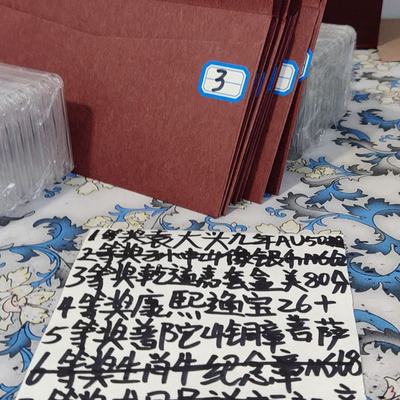 3
1等奖袁大头九年AU50
2等奖孙中山像银币MS62
3等奖乾通嘉套盒美80分
4等奖康熙通宝26+
5等奖普陀山铜章菩萨
6等奖生肖牛纪念章MS68